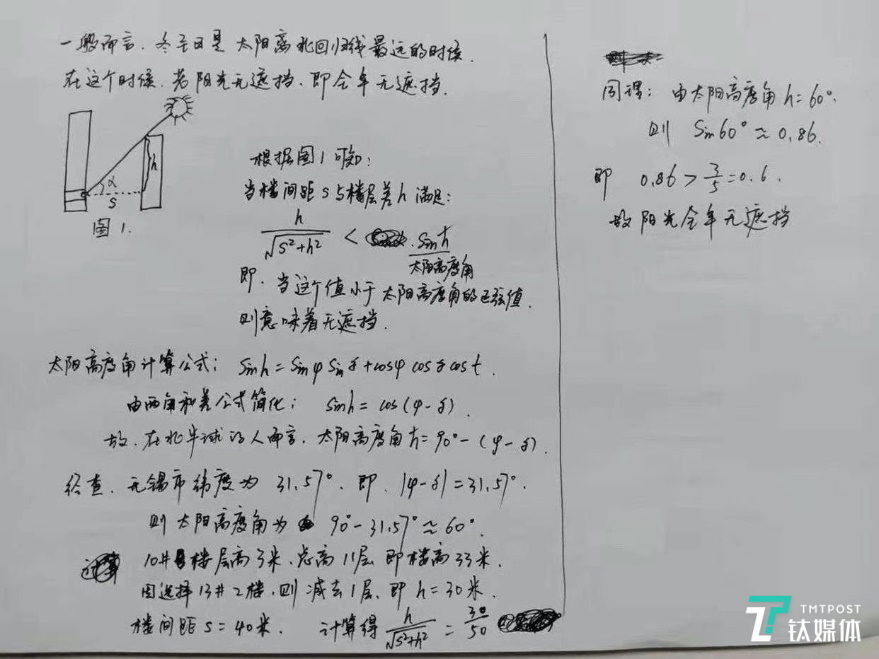 一般而言，冬至日是太阳离北回归线最远的时候，
在这个时候，若阳光无遮挡，即全年无遮挡.
α
h
s
图1.
根据图1可知：
当楼间距s与楼层差h满足：
h/√(s²+h²) < sin h
太阳高度角
即，当这个值小于太阳高度角的正弦值，
则意味着无遮挡.
太阳高度角计算公式：sin h = sin φ sin δ + cos φ cos δ cos t.
由两角和差公式简化：sin h = cos (φ-δ).
故，在北半球的人而言，太阳高度角 h = 90° - (φ-δ).
经查，无锡市纬度为31.57°，即，|φ-δ| = 31.57°.
则太阳高度角为 90° - 31.57° ≈ 60°.
10#楼层高3米，总高11层，即楼高33米.
因选择13#2楼，则减去1层，即 h = 30米.
楼间距 s = 40米. 计算得 h/√(s²+h²) = 30/50
因为：由太阳高度角 h = 60°.
则 Sin60° ≈ 0.86.
即 0.86 > 3/5 = 0.6.
故阳光全年无遮挡
TMTPOST
钛媒体